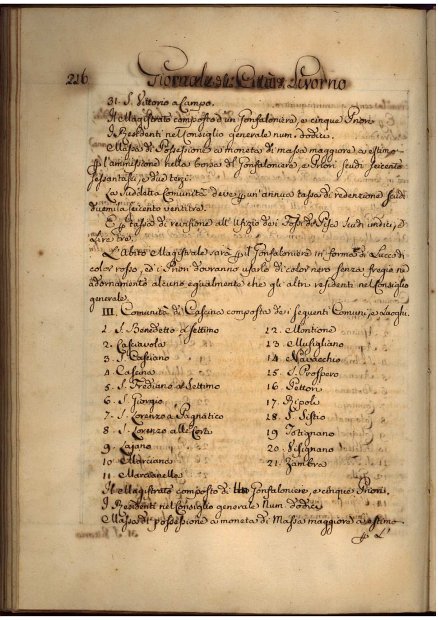 226
Giornale di Città di Livorno
31. S. Vittorio a Campo.
Il Magistrato composto d'un Gonfaloniere, e cinque Priori
I Residenti nel Consiglio generale num. dodici.
Massa di Possessione a moneta di massa maggiore a estimo
p l'ammissione nella borsa di Gonfaloniere, e Priori scudi seicento
sessantasei, e due terzi.
La suddetta Comunità deve p un'annua tassa di redenzione scudi
duemilaseicento ventitre.
E p tassa di revisione all'ufizio dei Fossi di Pisa scudi undici, e
Lire tre.
L'abito Magistrale sarà p il Gonfaloniere in forma di Lucco di
color rosso, ed i Priori dovranno usarlo di color nero senza fregio ne
adornamento alcuno egualmente che gli altri residenti nel Consiglio
generale.
III. Comunità di Cascina composta dei seguenti Comuni, e Luoghi.
1. S. Benedetto a settimo
2. Casciavola
3. S. Casciano
4. Cascina
5. S. Frediano a Settimo
6. S. Giorgio
7. S. Lorenzo a Pagnatico
8. S. Lorenzo alle Corti
9. Lajano
10. Marciana
11. Marcianella
12. Montione
13. Musigliano
14. Navacchio
15. S. Prospero
16. Pettori
17. Ripoli
18. S. Sistio
19. Titignano
20. Visignano
21. Zambra
Il Magistrato composto di Gonfaloniere, e cinque Priori.
I Residenti nel Consiglio generale Num. dodici
Massa di possessione a moneta di Massa maggiore a estimo
p l'